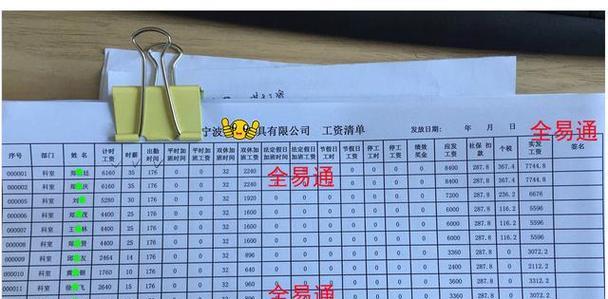 宁波 具有限公司 工资清单
发放日期: 年 月 日
全易通
序号 部门 姓名 计时工资 时薪 出勤时间 平时加班时间 平时加班工资 双休加班时间 双休加班工资 法定假日加班时间 法定假日加班工资 节假日工时 节假日工资 停工工时 停工工资 绩效奖金 应发工资 社保扣款 个税 实发工资 签名
000001 科室 廷 6160 35 176 0 0 32 2240 0 0 0 0 8400 287.8 367.4 7744.8
全易通
000002 科室 庆 6160 35 176 0 0 32 2240 0 0 0 0 8400 287.8 367.4 7744.8
000005 科室 刘 5280 30 176 0 0 32 1920 0 0 0 0 0 0 0 7200 287.8 236.2 6676
000006 科室 茂 4400 25 176 0 0 32 1600 0 0 0 0 0 0 0 6000 287.8 116.2 5596
000007 科室 王 林 4400 25 176 0 0 32 1600 0 0 0 0 0 0 0 6000 287.8 116.2 5596
000008 科室 贤 4400 25 176 0 0 32 1600 0 0 0 0 0 0 0 6000 287.8 116.2 5596
000009 科室 邱 友 2464 14 176 0 0 32 896 0 0 0 0 0 0 0 3360 287.8 0 3072.2
000010 科室 黄 朝 1760 10 176 0 0 32 640 0 0 0 0 0 0 0 2400 287.8 0 2112.2
000011 科室 徐 飞 2640 15 176 0 0 32 960 0 0 0 0 0 3600 287.8 0 3312.2
全易通